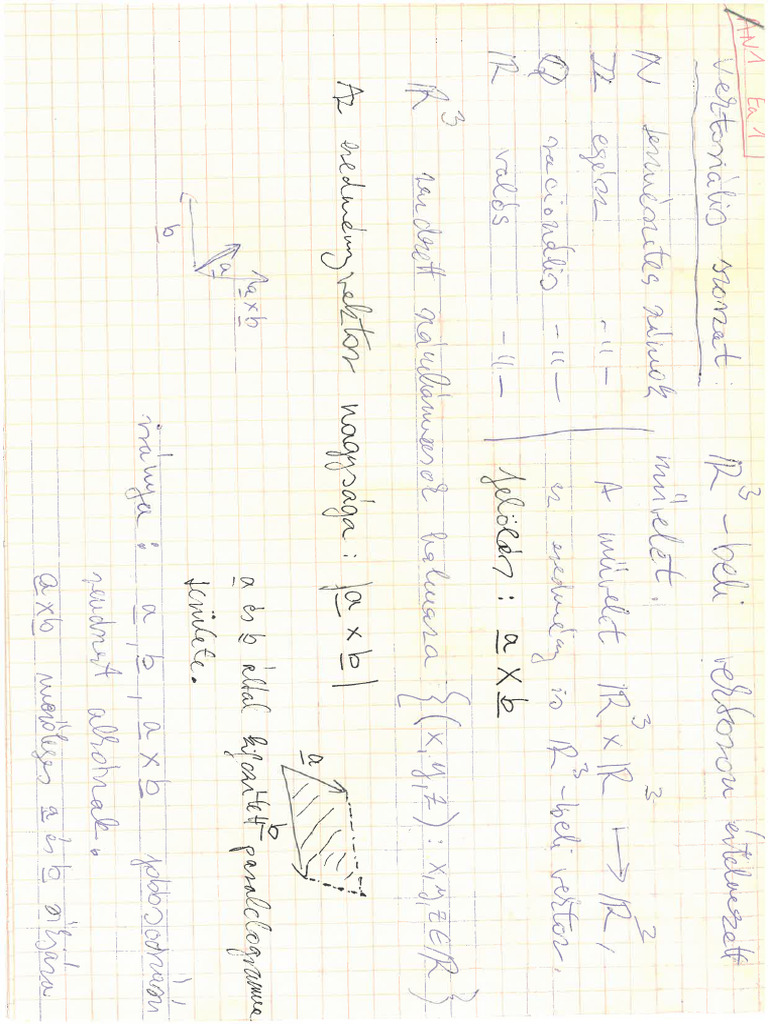 AN1 Ea 1
Vektoriális szorzat: R³-beli vektorokon értelmezett
művelet.
N természetes számok
Z egész -"-
Q racionális -"-
R valós -"-
A művelet R³ x R³ → R²,
az eredmény is R³-beli vektor.
Jelölés: a x b
R³ rendezett számhármasok halmaza {(x,y,z): x,y,z∈R}
Az eredményvektor nagysága: |a x b|
a és b által kifeszített paralelogramma
területe.
a
b
a x b
a
b
iránya: a, b, a x b jobbsodrású
rendszert alkotnak.
a x b merőleges a és b síkjára